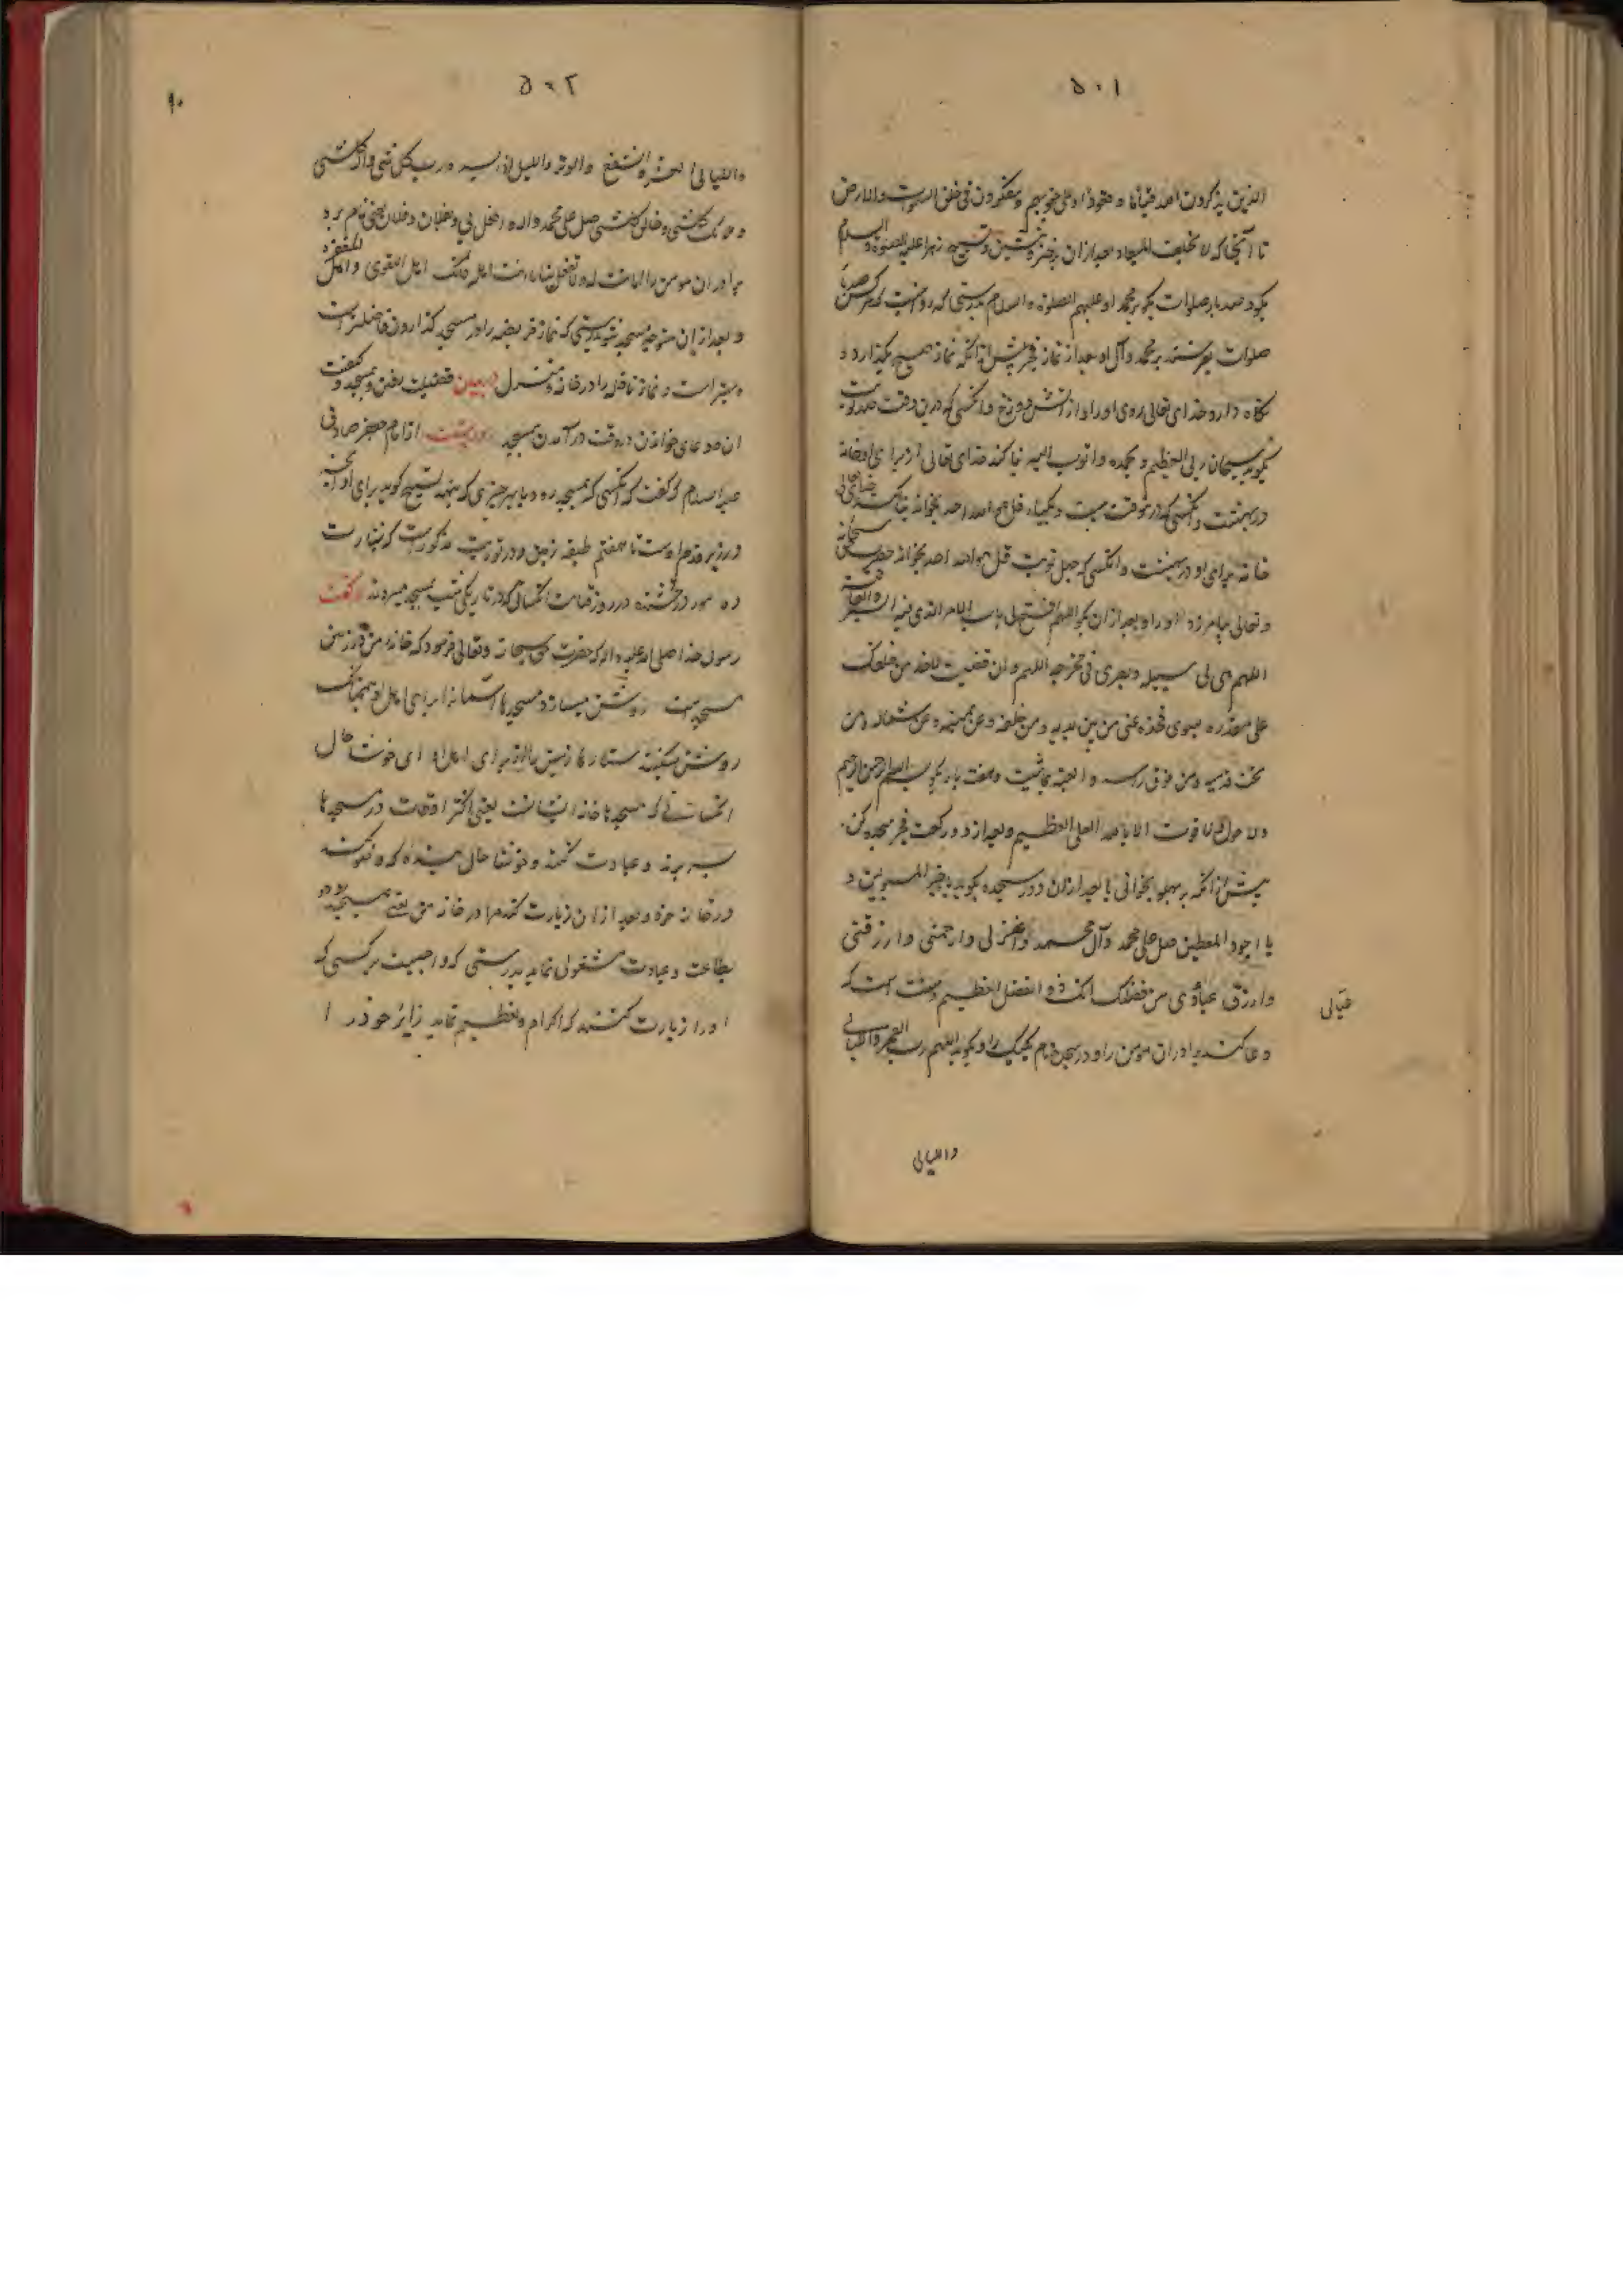 ۵۰۱
الذین یذکرون الله قیاما و قعودا و علی جنوبهم و یتفکرون فی خلق السموات والارض
تا آنجا که لا تخلف المیعاد بعد از آن برخیز و بنشین و تسبیح زهرا علیه الصلوة والسلام
بگو و صد بار صلوات بگو بر محمد و علیهم الصلوة والسلام بدرستی که روایت که هر کس صد بار
صلوات بفرستد بر محمد و آل او بعد از نماز فجر پیش از آنکه نماز صبح بگذارد و
نگاه دارد خدای تعالی روی او را از آتش دوزخ و آنکسی که درین وقت صد نوبت
بگوید سبحان ربی العظیم و بحمده و اتوب الیه بنا کند خدای تعالی از برای او خانه
در بهشت و آنکسی که درین وقت بیست و یکبار قل هو الله احد بخواند بنا کند خدای تعالی
خانه برای او در بهشت و آنکسی که چهل نوبت قل هو الله احد بخواند حضرت حق سبحانه
و تعالی بیامرزد او را و بعد از آن بگو اللهم افتح لی باب الامر الذی فیه الیسر والعافیة
اللهم هی لی سبیله و بصرنی مخرجه اللهم و ان قضیت لاحد من خلقک
علی مقدره بسوی فخذه عنی من بین یدیه و من خلفه و عن یمینه و عن شماله و من
تحت قدمیه و من فوق راسه و اکفنیه بما شئت و هفت بار بگو بسم الله الرحمن الرحیم
ولا حول ولا قوت الا بالله العلی العظیم و بعد از دو رکعت فجر سجده کن
پیش از آنکه بر پهلو بخوابی یا بعد از آن و در سجده بگوید یا خیر المسئولین و
یا اجود المعطین صل علی محمد و آل محمد و اغفر لی و ارحمنی و ارزقنی
و ارزق عیالی من فضلک انک ذو الفضل العظیم و سنت است که
عیالی
دعا کند برادران مومن را و در سجده نام یکیک را و بگوید اللهم رب الفجر و اللیالی
واللیالی
۵۰۲
۹۰
واللیالی العشر والشفع والوتر واللیل اذا یسر و رب کل شی و اله کل شی
و ملیک کل شی و خالق کل شی صل علی محمد و اله و افعل بی و بفلان و فلان یعنی نام برد
برادران مومن را ما انت اهله ولا تفعل بنا ما نحن اهله فانک اهل التقوی و اهل المغفره
و بعد از آن متوجه مسجد شو بدرستی که نماز فریضه را در مسجد گذاردن فاضلتر است
و بهتر است و نماز نافله را در خانه و منزل در بیان فضیلت رفتن بمسجد و کیفیت
آن و دعای خواندن در وقت در آمدن بمسجد روایتست از امام جعفر صادق
علیه السلام که گفت که آنکسی که بمسجد رود پا بهر چیزی که بنهد تسبیح گوید برای او آنچه
در زیر قدم اوست تا هفتم طبقه زمین و در توریت مذکورست که بشارت
ده بنور درخشنده در روز قیامت آنکسانی که در تاریکی شب بمسجد میروند گفت
رسول خدا صلی الله علیه و اله که حضرت حق سبحانه و تعالی فرمود که خانه من در زمین
مسجدست روشن میسازد مسجدها آسمان را برای اهل او همچنانکه
روشن میکنند ستارها زمین را از برای اهل او ای خوشا حال
آنکسانی که مسجدها خانه ایشانست یعنی اکثر اوقات در مسجدها
بسر برند و عبادت کنند و خوشا حال بنده که وضو کند
در خانه خود و بعد از آن زیارت کند مرا در خانه من یعنی بمسجد رود
بطاعت و عبادت مشغول نماید بدرستی که واجبست بر کسی که
او را زیارت کنند که اکرام و تعظیم نماید زایر خود را